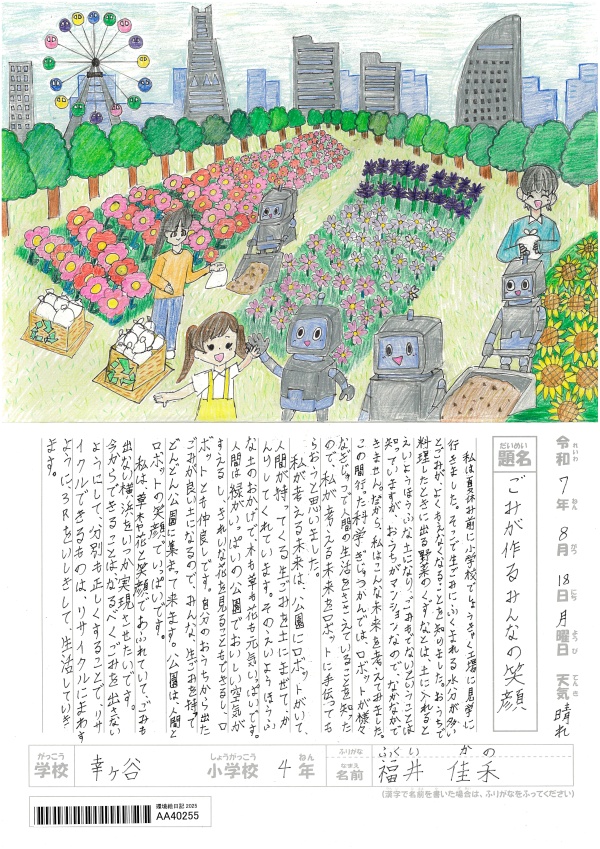 令和 7年 8月 18日 月曜日 天気 晴れ
れいわ ねん がつ にち ようび てんき
だいめい
題名
ごみが作るみんなの笑顔
私は夏休み前に小学校でしょうきゃく工場に見学に
行きました。そこで生ごみにふくまれる水分が多い
とごみがよくもえなくなることを知りました。おうちで
料理したときに出る野菜のくずなどは、土に入れると
えいようほうふな土になり、ごみもでないということは
知っていますが、おうちがマンションなので、なかなかで
きません。だから、私はこんな未来を考えてみました。
この間行った科学ぎじゅつかんでは、ロボットが様々
なぎじゅつで人間の生活をささえていることを知った
ので、私が考える未来をロボットに手伝っても
らおうと思いました。
私が考える未来は、公園にロボットがいて、
人間が持ってくる生ごみを土にまぜて、か
んりしてくれています。そのえいようほうふ
な土のおかげで、木も草も花も元気いっぱいです。
人間は緑がいっぱいの公園でおいしい空気が
すえるし、きれいな花を見ることもできるし、ロ
ボットとも仲良しです。自分のおうちから出た
ごみが良い土になるので、みんな、生ごみを持って
どんどん公園に集まって来ます。公園は人間と
ロボットの笑顔でいっぱいです。
私は、草木や花と笑顔であふれていて、ごみも
出ない横浜をいつか実現させたいです。
今からできることはなるべくごみを出さない
ようにして、分別も正しくすることで、リサ
イクルできるものは、リサイクルにまわす
ように3Rをいしきして、生活していき
ます。
がっこう しょうがっこう ねん ふりがな ふくい かの
学校 幸ヶ谷 小学校 4年 なまえ 名前 福井 佳禾
(漢字で名前を書いた場合は、ふりがなをふってください)
環境絵日記 2025
AA40255